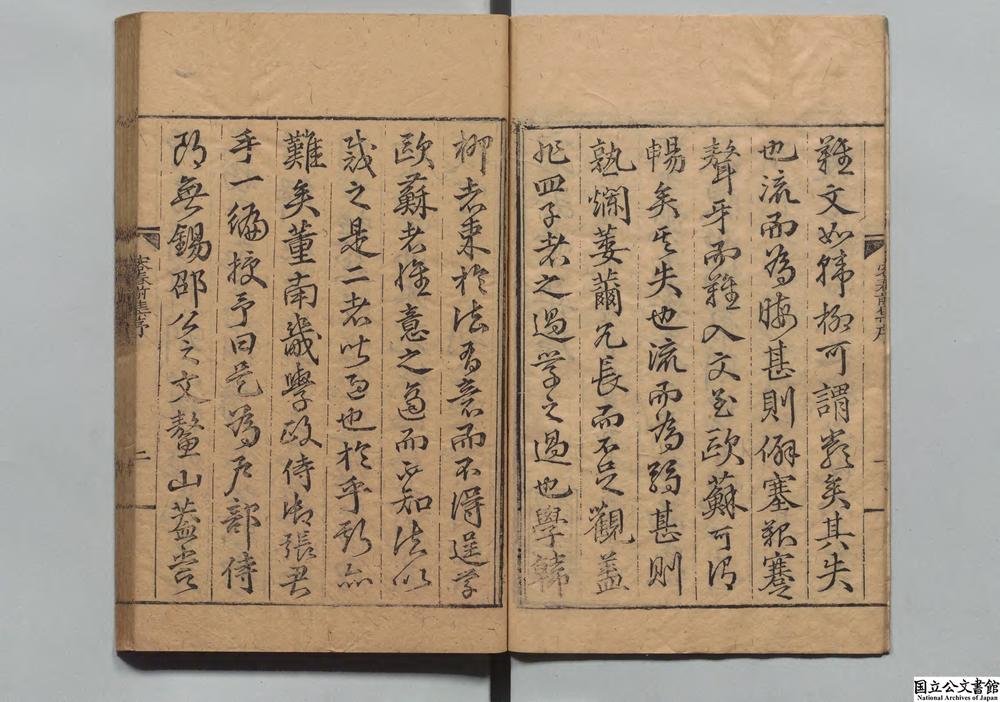 難文如韓柳可謂嚴矣其失
也流而為晦甚則僻塞艱蹇
聱牙而難入文至歐蘇可謂
暢矣其失也流而為弱甚則
熟爛萎薾冗長而不足觀蓋
非四子者之過學之過也學韓
柳者束於法有意而不得逞學
歐蘇者推意之而不知法以
之是二者皆過也於乎亦
難矣董南畿學政侍御張君
手一編授予曰是為戶部侍
郎無錫邵公之文鰲山蓋嘗
容春前集序
二
国立公文書館
National Archives of Japan